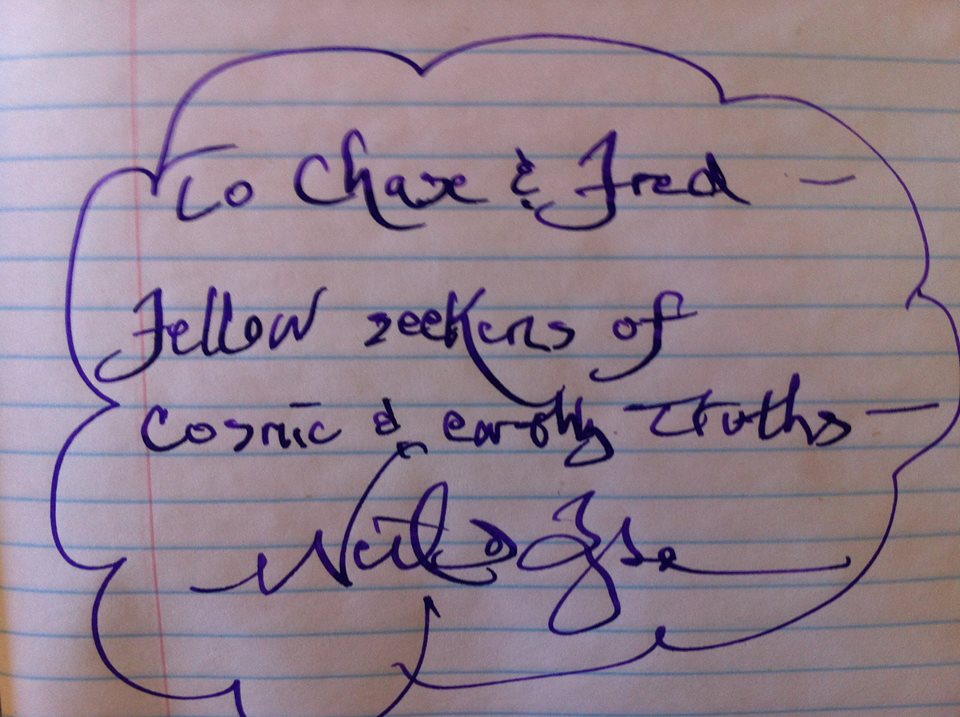 To Chase & Fred —
Fellow seekers of
Cosmic & earthly Truths —
Neil